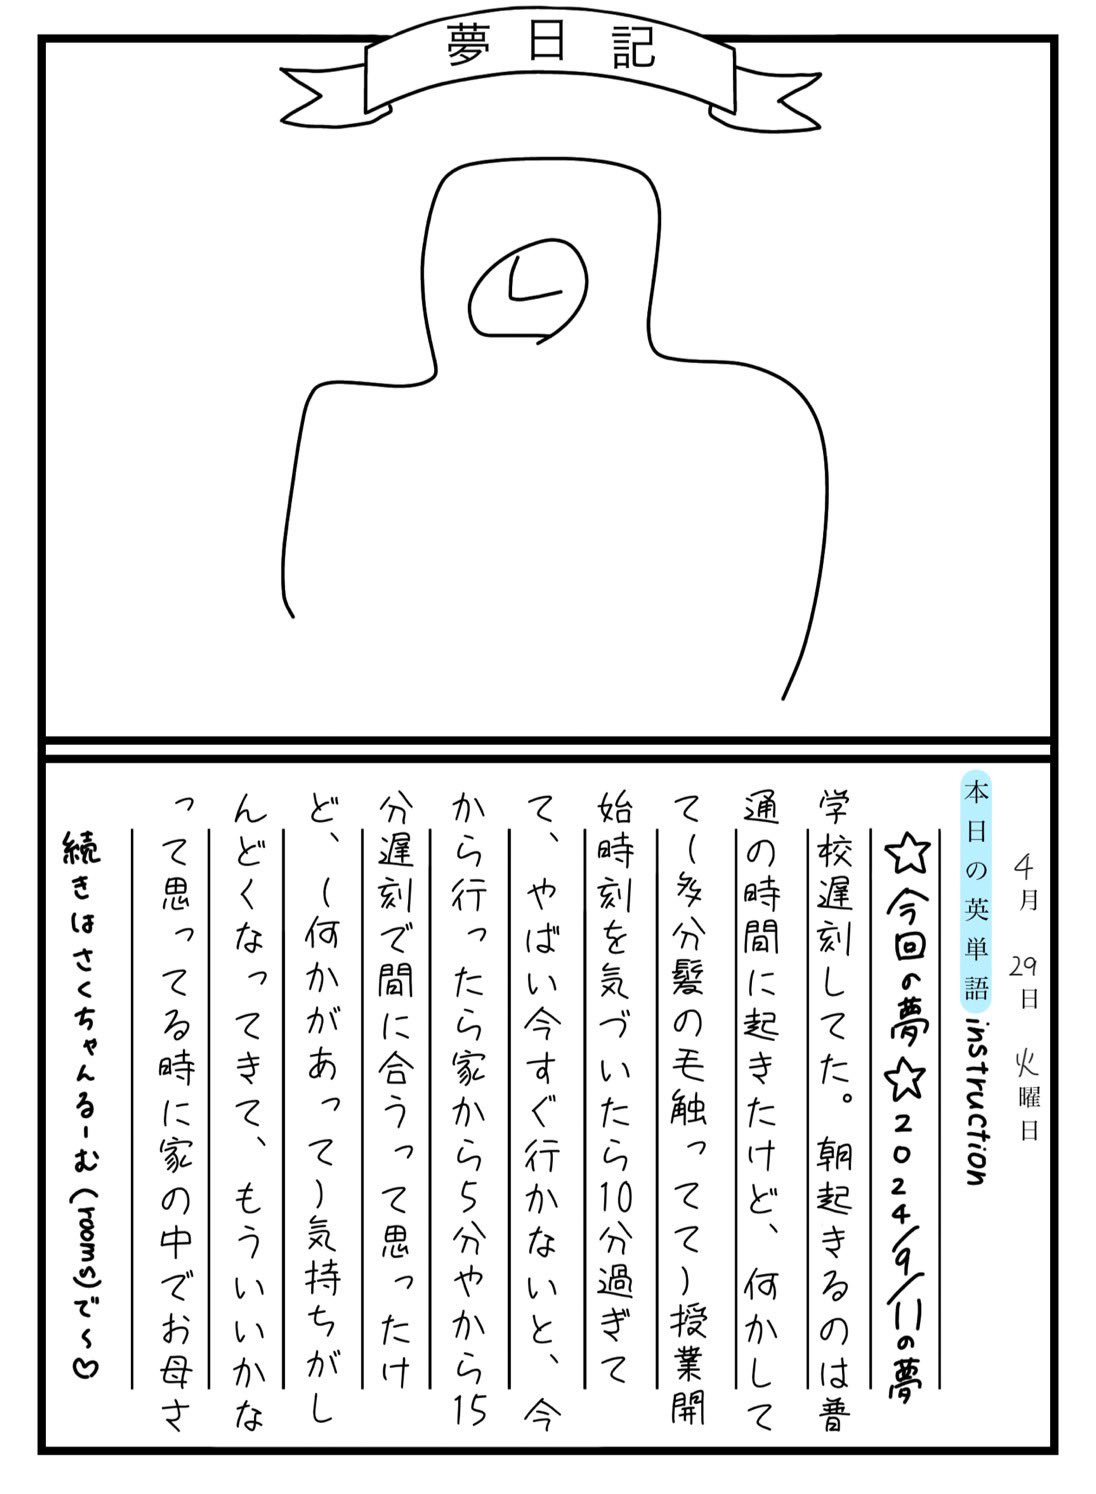 夢日記
4月 29日 火曜日
本日の英単語 instruction
☆今回の夢☆2024/9/11の夢
学校遅刻してた。朝起きるのは普
通の時間に起きたけど、何かしてて
て(多分髪の毛触ってて)授業開
始時刻を気づいたら10分過ぎて
て、やばい今すぐ行かないと、今
から行ったら家から5分やから15
分遅刻で間に合うって思ったけ
ど、(何かがあって)気持ちがし
んどくなってきて、もういいかな
って思ってる時に家の中でお母さ
続きはさくちゃんるーむ(rooms)で〜♡